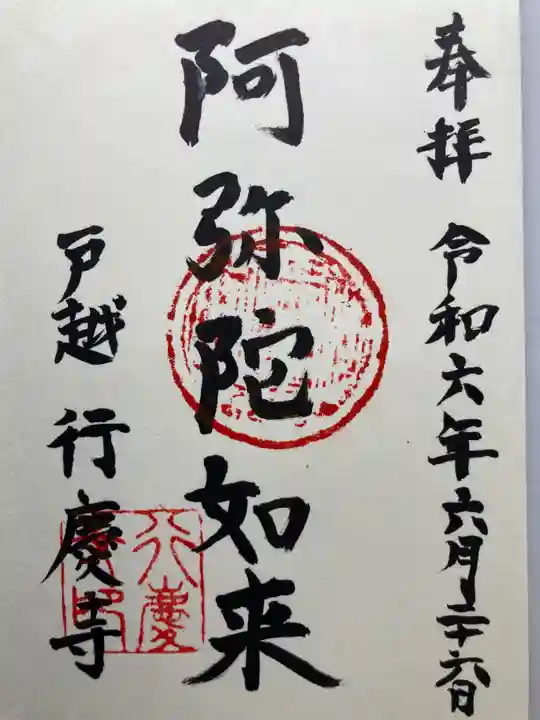 奉拝 令和六年六月二十六日
阿弥陀如来
戸越 行慶寺
行慶